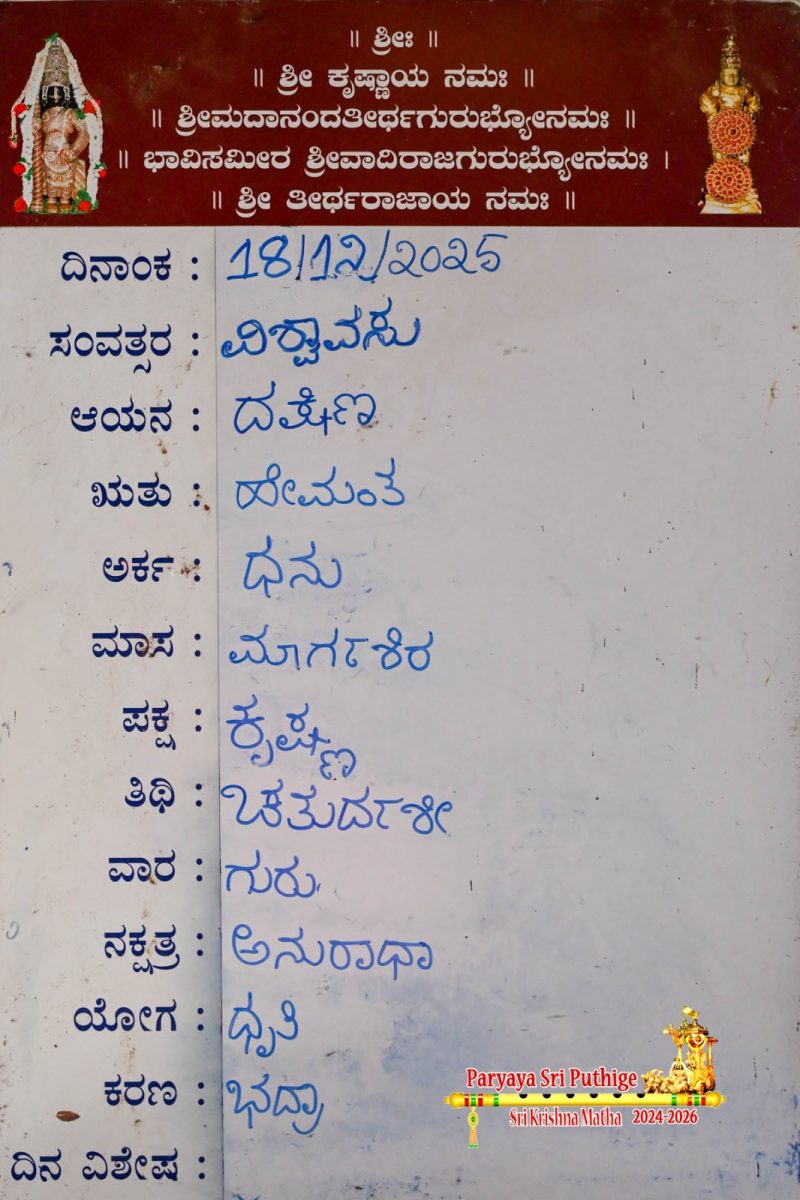 ॥ ಶ್ರೀಃ ॥
॥ ಶ್ರೀ ಕೃಷ್ಣಾಯ ನಮಃ ॥
॥ ಶ್ರೀಮದಾನಂದತೀರ್ಥಗುರುಭ್ಯೋನಮಃ ॥
॥ ಭಾವಿಸಮೀರ ಶ್ರೀವಾದಿರಾಜಗುರುಭ್ಯೋನಮಃ ।
॥ ಶ್ರೀ ತೀರ್ಥರಾಜಾಯ ನಮಃ ॥
ದಿನಾಂಕ : 18/12/2025
ಸಂವತ್ಸರ : ವಿಶ್ವಾವಸು
ಆಯನ : ದಕ್ಷಿಣ
ಋತು : ಹೇಮಂತ
ಅರ್ಕ : ಧನು
ಮಾಸ : ಮಾರ್ಗಶಿರ
ಪಕ್ಷ : ಕೃಷ್ಣ
ತಿಥಿ : ಚತುರ್ದಶೀ
ವಾರ : ಗುರು
ನಕ್ಷತ್ರ : ಅನುರಾಧಾ
ಯೋಗ : ಧೃತಿ
ಕರಣ : ಭದ್ರಾ
ದಿನ ವಿಶೇಷ :
Paryaya Sri Puthige
Sri Krishna Matha 2024-2026